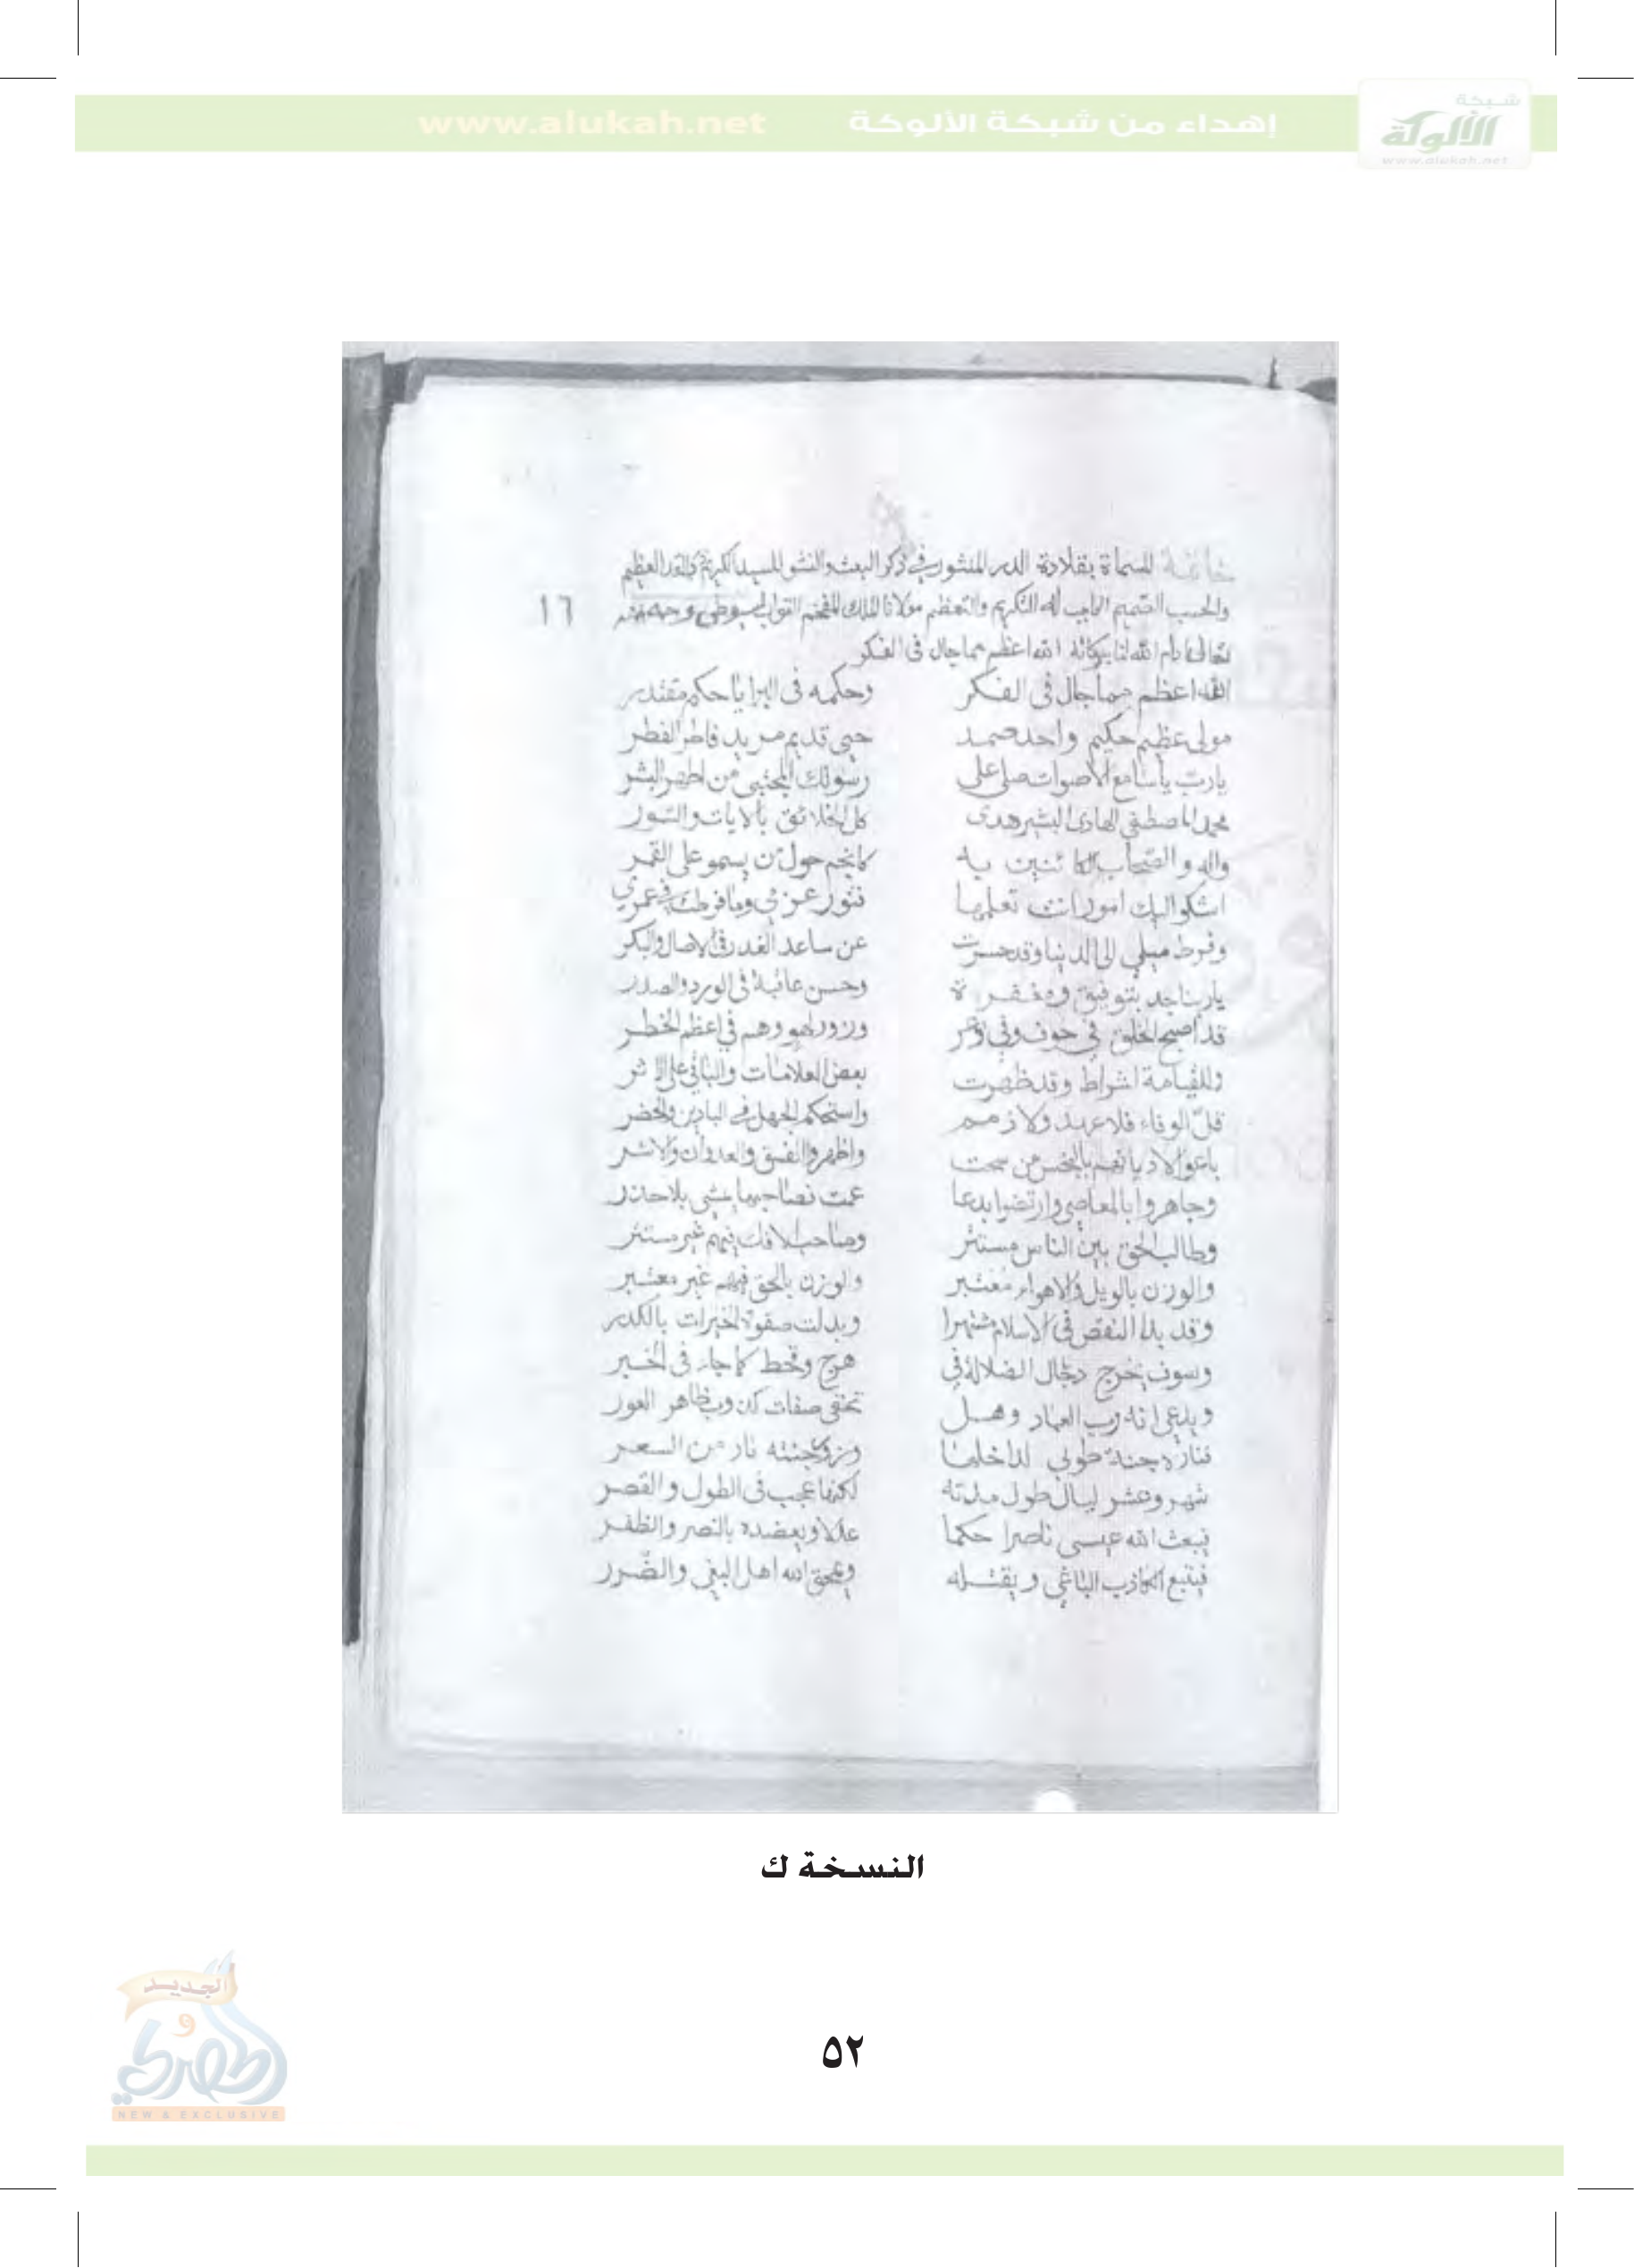 شبكة
الألوكة
www.alukah.net
إهداء من شبكة الألوكة www.alukah.net
المسماة بقلادة الدر المنثور في ذكر البعث والنشور للسيد الكريم العظيم
والحسب الصميم له التكريم والتعظيم مولانا الملك المفخم
١٦
الله اعظم مما جال في الفكر
الله اعظم مما جال في الفكر وحكمه في البرايا حكم مقتدر
مولى عظيم حكيم واحد صمد حي قديم مريد فاطر الفطر
يارب ياسامع الاصوات صل على رسولك المجتبى من اطهر البشر
محمد المصطفى الهادى البشير هدى كل الخلائق بالايات والسور
واله والصحاب به كانجم حول من يسمو على القمر
اشكو اليك امورا انت تعلمها فتور عزمي وما فرطت في عمري
وفرط ميلي الى الدنيا وقد حسرت عن ساعد الغدر في الاصال والبكر
ياربنا جد بتوفيق ومغفرة وحسن عاقبة في الورد والصدر
قد اصبح الخلق في خوف وفي وزور لهو وهم في اعظم الخطر
وللقيامة اشراط وقد ظهرت بعض العلامات والباقي على الاثر
قل الوفاء فلا عهد ولا ذمم واستحكم الجهل في البادين والحضر
باعوا الاديانهم بالبخس من سحت واظهروا الفسق والعدوان والاشر
وجاهروا بالمعاصي وارتضوا بدعا عمت فصاحبها يمشي بلا حذر
وطالب الحق بين الناس مستتر وصاحب الافك فيهم غير مستتر
والوزن بالويل والاهواء معتبر والوزن بالحق فيهم غير معتبر
وقد بدا النقص في الاسلام مشتهرا وبدلت صفوة الخيرات بالكدر
وسوف يخرج دجال الضلالة في هرج وقحط كما جاء في الخبر
ويدعي انه رب العباد وهل تخفى صفات كذوب ظاهر العور
فناره جنة طوبى لداخلها وزور جنته نار من السعر
شهر وعشر ليال طول مدته لكنها عجب في الطول والقصر
فيبعث الله عيسى ناصرا حكما عدلا ويعضده بالنصر والظفر
فيتبع الكاذب الباغي ويقتله ويمحق الله اهل البغي والضرر
النسخة ك
الجديد
و
الحصري
NEW & EXCLUSIVE
٥٢